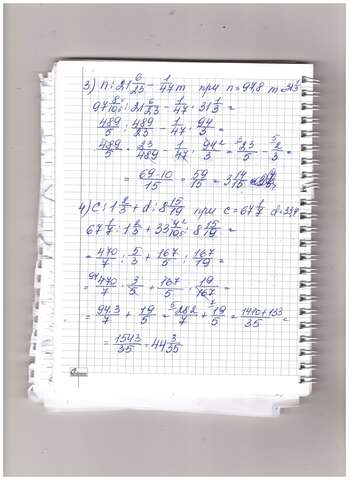 3) n : 21 6/23 - 1/47 m при n = 97,8 m = 31 1/3
97 8/10 : 21 6/23 - 1/47 · 31 1/3 =
489/5 : 489/23 - 1/47 · 94/3 =
489/5 · 23/489 - 1/47 · 94 2/3 = 23/5 - 2/3 =
= 69-10/15 = 59/15 = 3 14/15
4) c : 1 2/3 + d : 8 15/19 при c = 67 1/7 d = 33,4
67 1/7 : 1 2/3 + 33 4/10 : 8 15/19 =
= 470/7 : 5/3 + 167/5 : 167/19 =
= 470/7 · 3/5 + 167/5 · 19/167 =
= 94·3/7 + 19/5 = 282/7 + 19/5 = 1410+133/35 =
= 1543/35 = 44 3/35